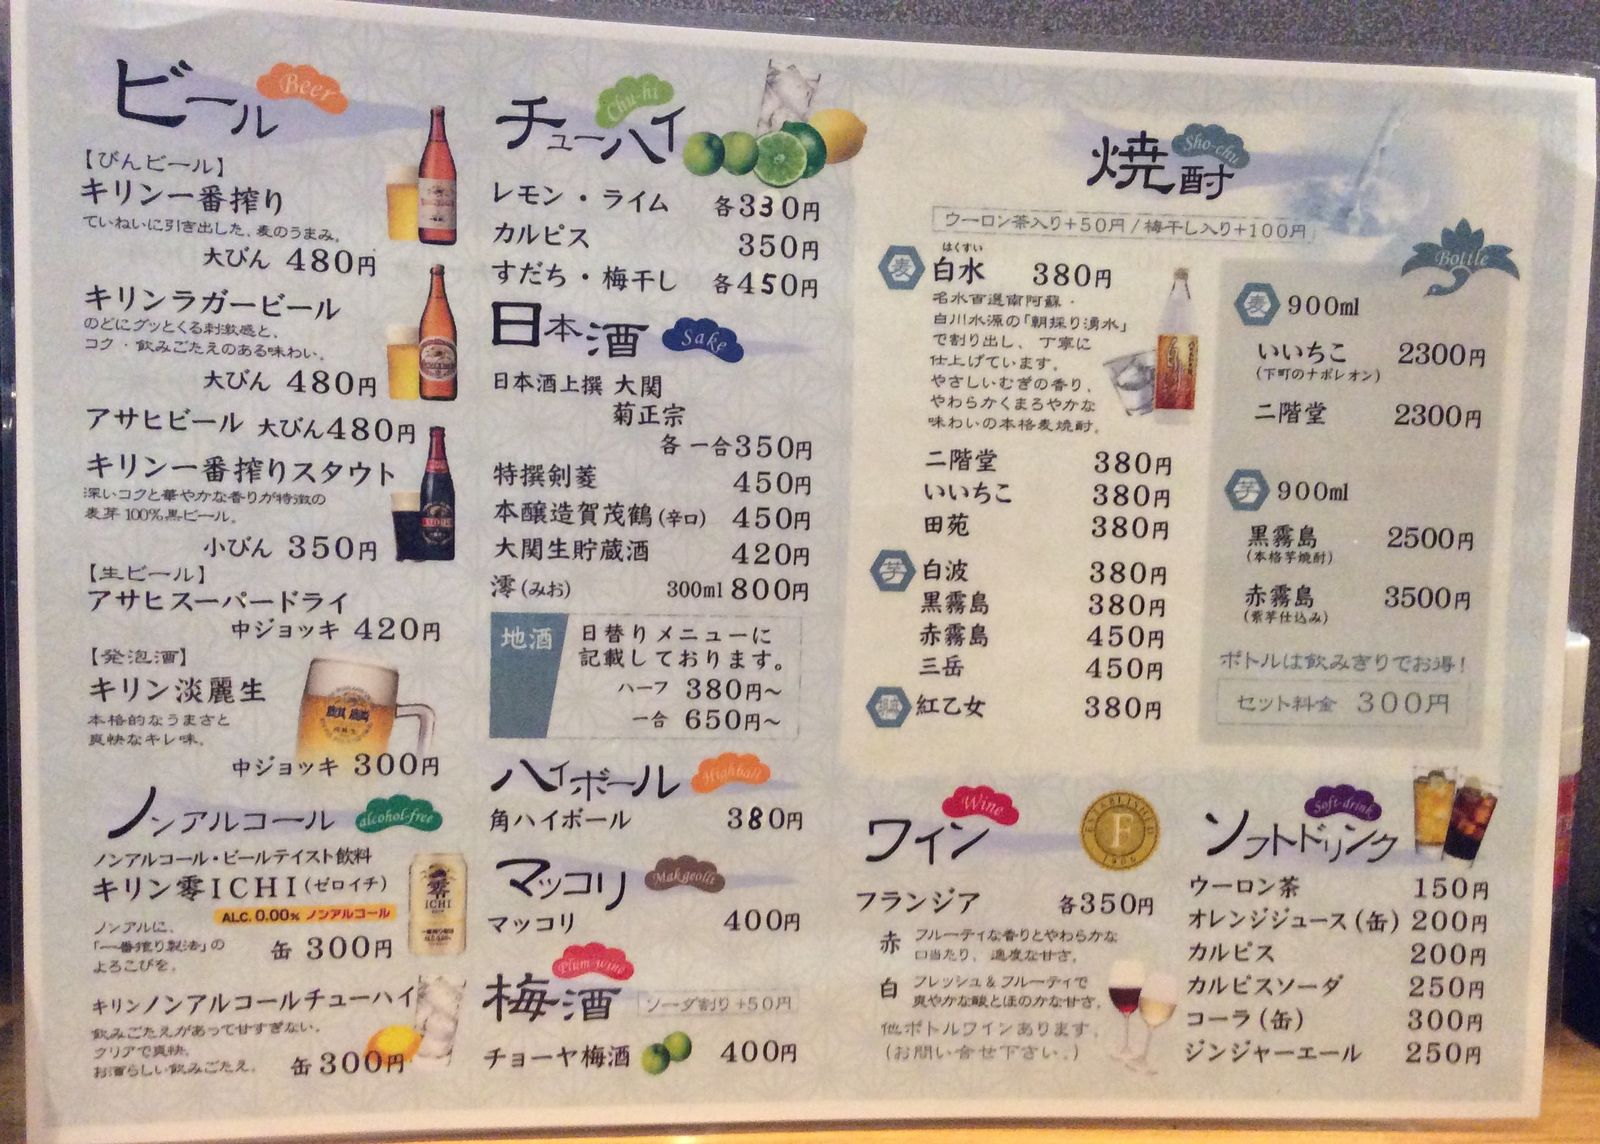 ビール Beer
【びんビール】
キリン一番搾り
ていねいに引き出した、麦のうまみ。
大びん 480円
キリンラガービール
のどにグッとくる刺激感と、
コク・飲みごたえのある味わい。
大びん 480円
アサヒビール 大びん480円
キリン一番搾りスタウト
深いコクと華やかな香りが特徴の
麦芽100%黒ビール。
小びん 350円
【生ビール】
アサヒスーパードライ
中ジョッキ 420円
【発泡酒】
キリン淡麗生
本格的なうまさと
爽快なキレ味。
中ジョッキ 300円
ノンアルコール alcohol-free
ノンアルコール・ビールテイスト飲料
キリン零ICHI(ゼロイチ)
ALC. 0.00% ノンアルコール
ノンアルに、
「一番搾り製法」の
よろこびを。
缶 300円
キリンノンアルコールチューハイ
飲みごたえがあって甘すぎない。
クリアで爽快。
お酒らしい飲みごたえ。
缶 300円
チューハイ Chu-hi
レモン・ライム 各330円
カルピス 350円
すだち・梅干し 各450円
日本酒 Sake
日本酒上撰 大関
菊正宗
各 一合350円
特撰剣菱 450円
本醸造賀茂鶴(辛口) 450円
大関生貯蔵酒 420円
澪(みお) 300ml 800円
地酒
日替りメニューに
記載しております。
ハーフ 380円～
一合 650円～
ハイボール Highball
角ハイボール 380円
マッコリ Makgeolli
マッコリ 400円
梅酒 Plum-wine
ソーダ割り+50円
チョーヤ梅酒 400円
焼酎 Sho-chu
ウーロン茶入り+50円/梅干し入り+100円
麦 はくすい
白水 380円
名水百選南阿蘇・
白川水源の「朝採り湧水」
で割り出し、丁寧に
仕上げています。
やさしいむぎの香り、
やわらかくまろやかな
味わいの本格麦焼酎。
二階堂 380円
いいちこ 380円
田苑 380円
芋 白波 380円
黒霧島 380円
赤霧島 450円
三岳 450円
紅乙女 380円
Bottle
麦 900ml
いいちこ 2300円
(下町のナポレオン)
二階堂 2300円
芋 900ml
黒霧島 2500円
(本格芋焼酎)
赤霧島 3500円
(紫芋仕込み)
ボトルは飲みきりでお得!
セット料金 300円
ワイン Wine
ESTABLISHED
F
1906
フランジア 各350円
赤 フルーティな香りとやわらかな
口当たり、適度な甘さ。
白 フレッシュ&フルーティで
爽やかな酸とほのかな甘さ。
他ボトルワインあります。
(お問い合せ下さい。)
ソフトドリンク Soft-drink
ウーロン茶 150円
オレンジジュース(缶) 200円
カルピス 200円
カルピスソーダ 250円
コーラ(缶) 300円
ジンジャーエール 250円